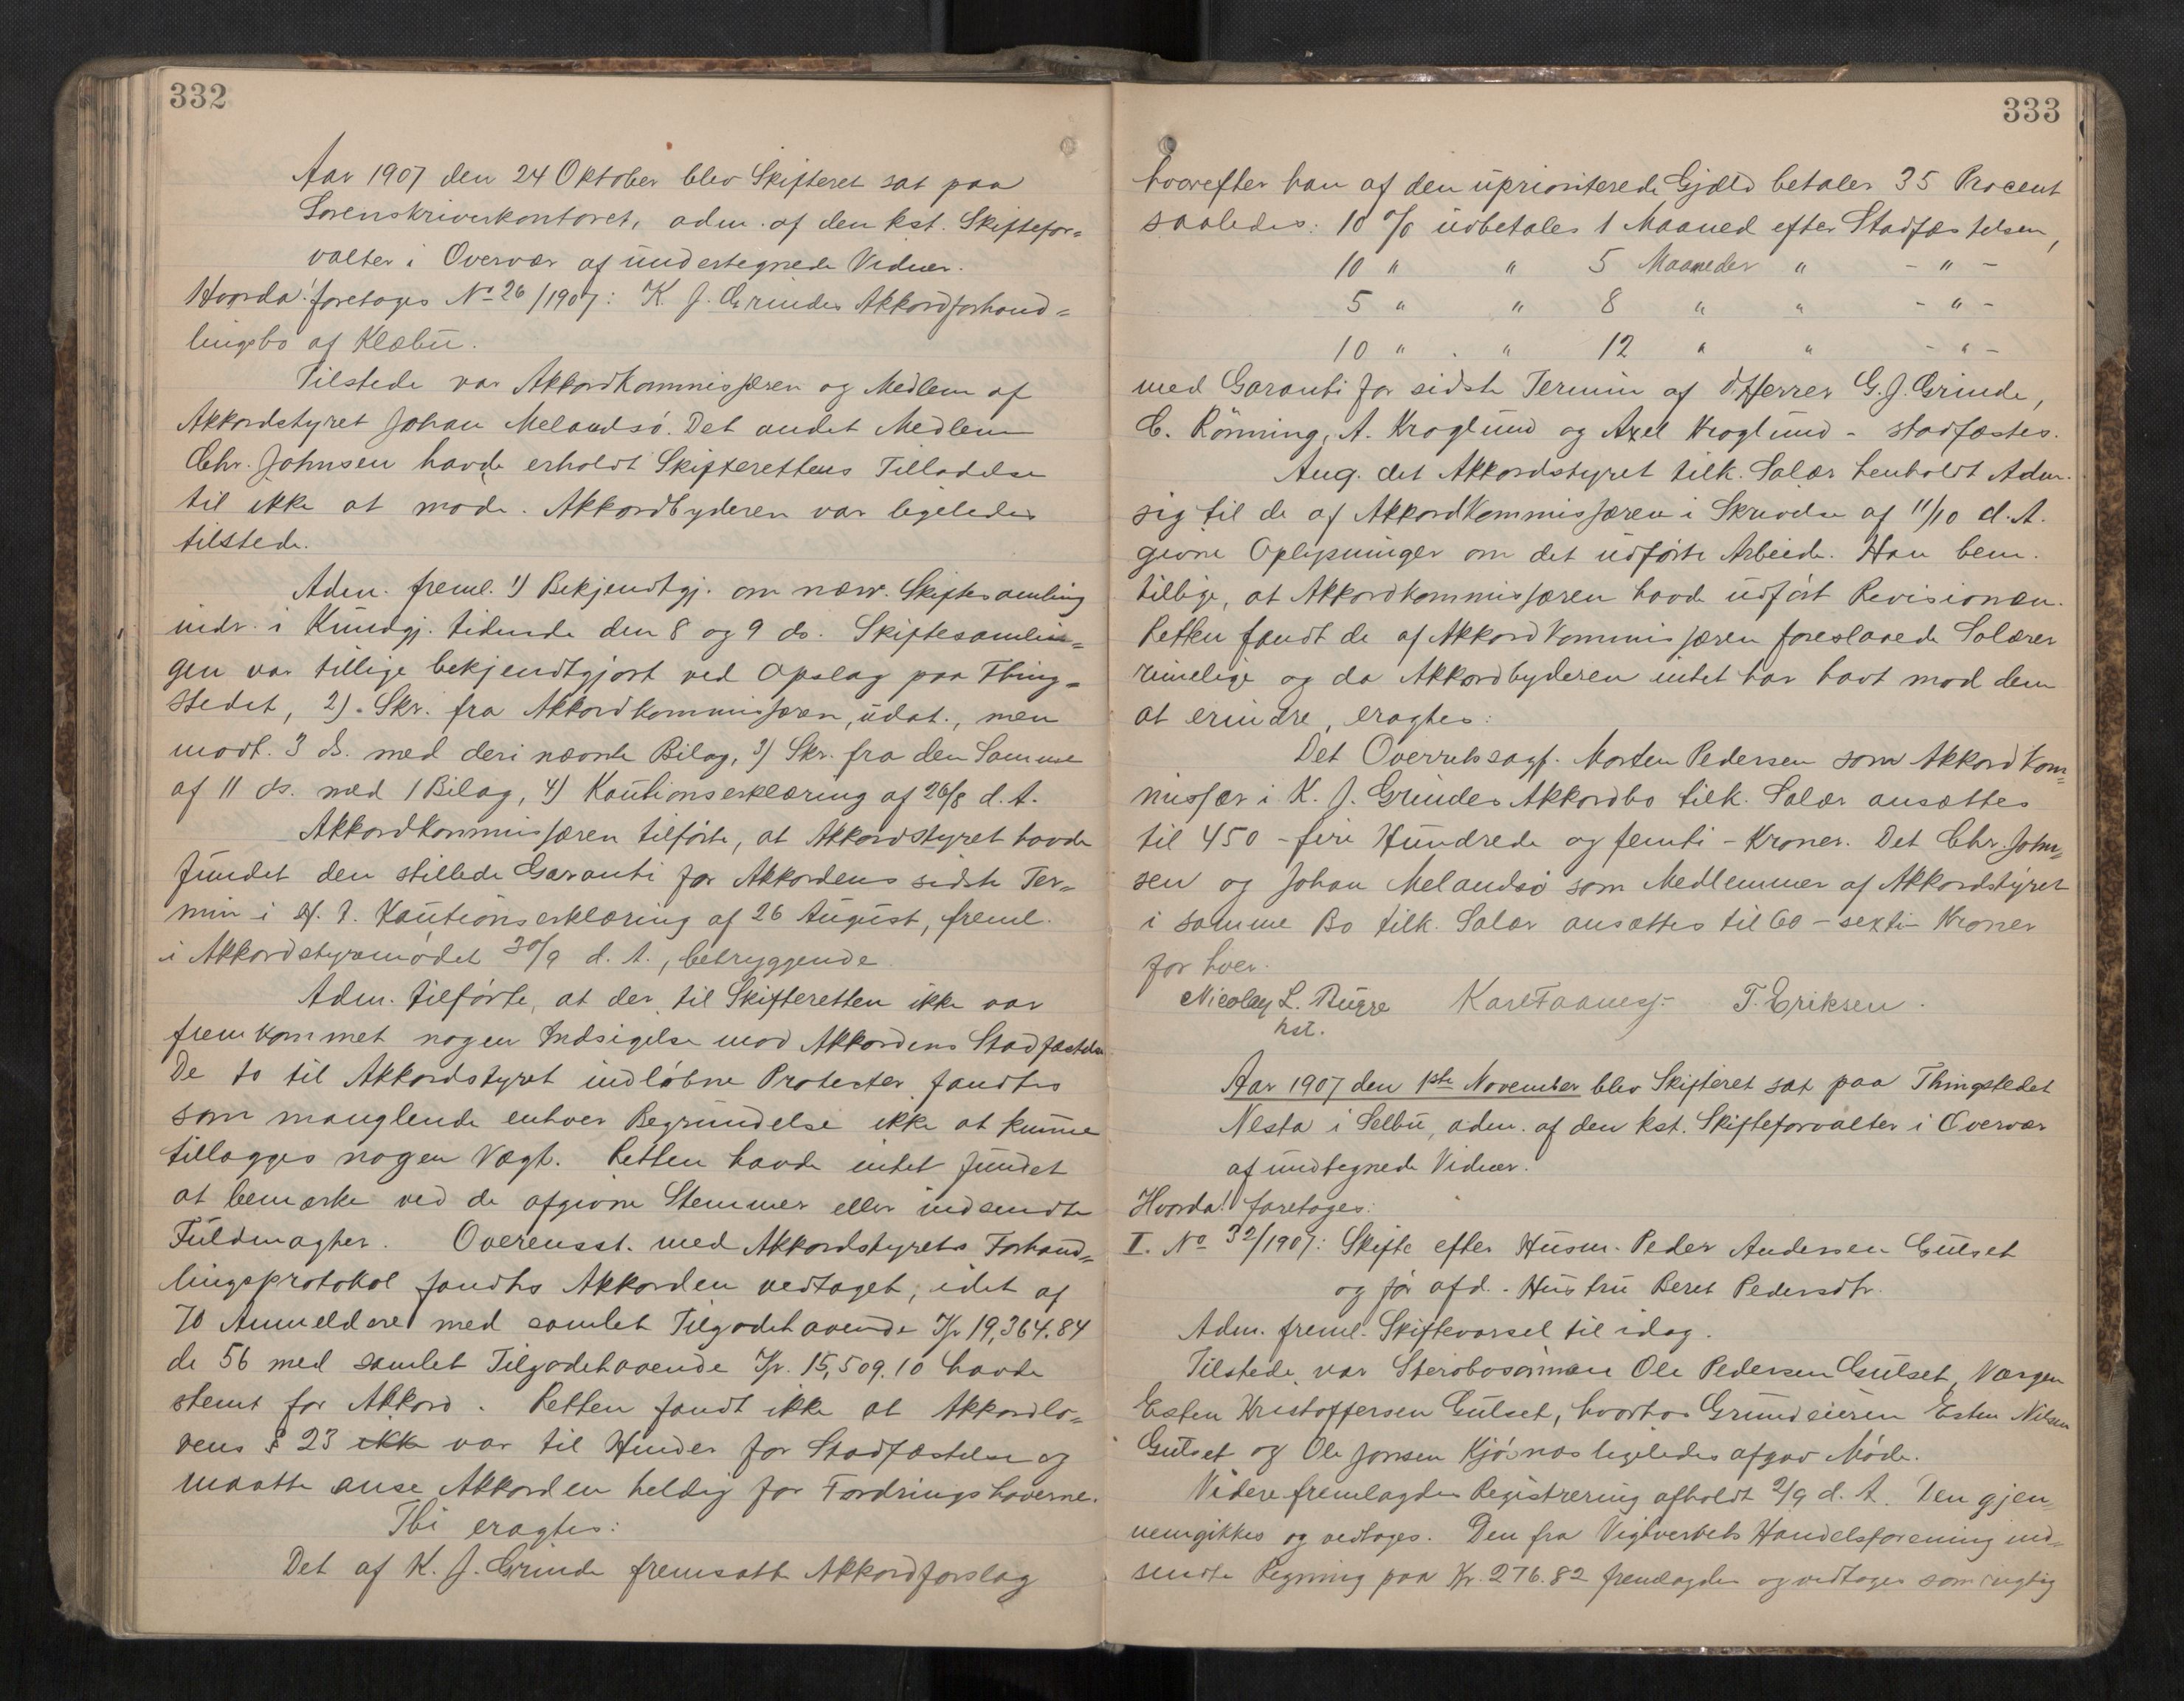 332
Aar 1907 den 24 Oktober blev Skifteret sat paa
Sorenskriverkontoret, adm. af den kst. Skiftefor=
valter i Overvær af undertegnede Vidner.
Hvorda! foretoges No 26/1907: K. J. Grindes Akkordforhand=
lingsbo af Klæbu.
Tilstede var Akkordkommissæren og Medlem af
Akkordstyret Johan Melandsö. Det andet Medlem
Chr. Johnsen havde erholdt Skifterettens Tilladelse
til ikke at møde. Akkordbyderen var ligeledes
tilstede.
Adm. freml. 1) Bekjendtgj. om nærv. Skiftesamling
indr. i Kundgj. tidende den 8 og 9 ds. Skiftesamlin=
gen var tillige bekjendtgjort ved Opslag paa Thing=
stedet, 2). Skr. fra Akkordkommissæren, udat., men
modt. 3 ds. med deri nævnte Bilag, 3) Skr. fra den Samme
af 11 ds. med 1 Bilag, 4) Kautionserklæring af 26/8 d. A.
Akkordkommissæren tilførte, at Akkordstyret havde
fundet den stillede Garanti for Akkordens sidste Ter=
min i Kautionserklæring af 26 August, freml.
i Akkordstyremødet 30/9 d. A., betryggende.
Adm. tilførte, at der til Skifteretten ikke var
fremkommet nogen Indsigelse mod Akkordens Stadfæstelse.
De to til Akkordstyret indløbne Protester fandtes
som manglende enhver Begrundelse ikke at kunne
tillægges nogen Vægt. Retten havde intet fundet
at bemærke ved de afgivne Stemmer eller indsendte
Fuldmagter. Overensst. med Akkordstyrets Forhand=
lingsprotokol fandtes Akkorden vedtaget, idet af
70 Anmeldere med samlet Tilgodehavende Kr 19,364.84
de 56 med samlet Tilgodehavende Kr. 15,509.10 havde
stemt for Akkord. Retten fandt ikke at Akkordlo=
vens § 23 ikke var til Hinder for Stadfæstelse og
maatte anse Akkorden heldig for Fordringshaverne.
Thi eragtes:
Det af K. J. Grinde fremsatte Akkordforslag
333
hvorefter han af den uprioriterede Gjæld betaler 35 Procent
saaledes: 10 % udbetales 1 Maaned efter Stadfæstelsen,
10 " " 5 Maaneder " - " -
5 " " 8 " " - " -
10 " " 12 " " - " -
med Garanti for sidste Termin af d'Herrer G. J. Grinde,
C. Rönning, A. Kroglund og Axel Kroglund - stadfæstes.
Aug. det Akkordstyret tilk. Salær henholdt Adm.
sig til de af Akkordkommissæren i Skrivelse af 11/10 d. A.
givne Oplysninger om det udførte Arbeide. Han bem.
tillige, at Akkordkommissæren havde udført Revisionen.
Retten fandt de af Akkordkommissæren foreslaaede Salærer
rimelige og da Akkordbyderen intet har havt mod dem
at erindre, eragtes:
Det Overretssagf. Morten Pedersen som Akkordkom=
missær i K. J. Grindes Akkordbo tilk. Salær ansættes
til 450 - fire Hundrede og femti - Kroner. Det Chr. John=
sen og Johan Melandsö som Medlemmer af Akkordstyret
i samme Bo tilk. Salær ansættes til 60 - sexti - Kroner
for hver.
Nicolay L. Bugge Karl T. Eriksen.
kst.
Aar 1907 den 1ste November blev Skifteret sat paa Thingstedet
Nesta i Selbu, adm. af den kst. Skifteforvalter i Overvær
af undtegnede Vidner.
Hvorda! foretoges:
I. No 32/1907: Skifte efter Husm. Peder Andersen Gulset
og før afd. Hustru Beret Pedersdtr.
Adm. freml. Skiftevarsel til idag.
Tilstede var Sterbosønnen Ole Pedersen Gulset, Værgen
Esten Kristoffersen Gulset, hvorhos Grundeieren Esten Nilsen
Gulset og Ole Jonsen Kjøsnæs ligeledes afgav Møde.
Videre fremlagdes Registrering afholdt 2/9 d. A. Den gjen=
nemgikkes og vedtoges. Den fra Vigverkets Handelsforening ind=
sendte Regning paa Kr. 276.82 fremlagdes og vedtoges som rigtig